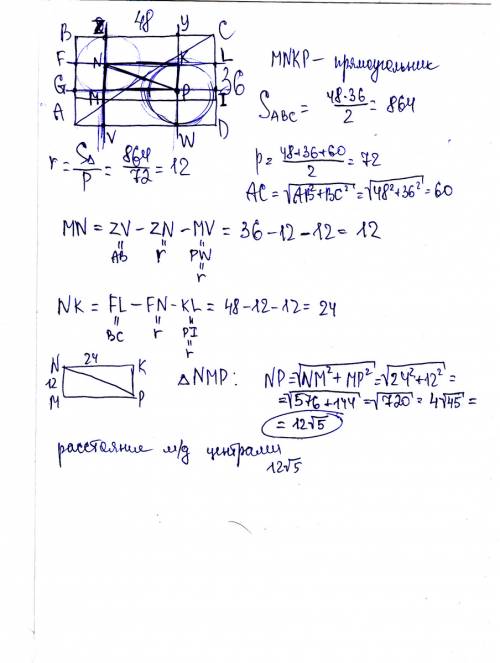 B Z 48 Y C
F N K L
36
G M P I
A V W D
MNKP – прямоугольник
S_ABC = 48·36/2 = 864
r = S_Δ/P = 864/72 = 12
p = 48+36+60/2 = 72
AC = √AB²+BC² = √48²+36² = 60
MN = ZV – ZN – MV = 36 – 12 – 12 = 12
AB r PW
r
NK = FL – FN – KL = 48 – 12 – 12 = 24
BC r PI
r
N 24 K
12
M P
ΔNMP: NP = √NM² + MP² = √24² + 12² =
= √576 + 144 = √720 = 4√45 =
= 12√5
расстояние м/д центрами
12√5